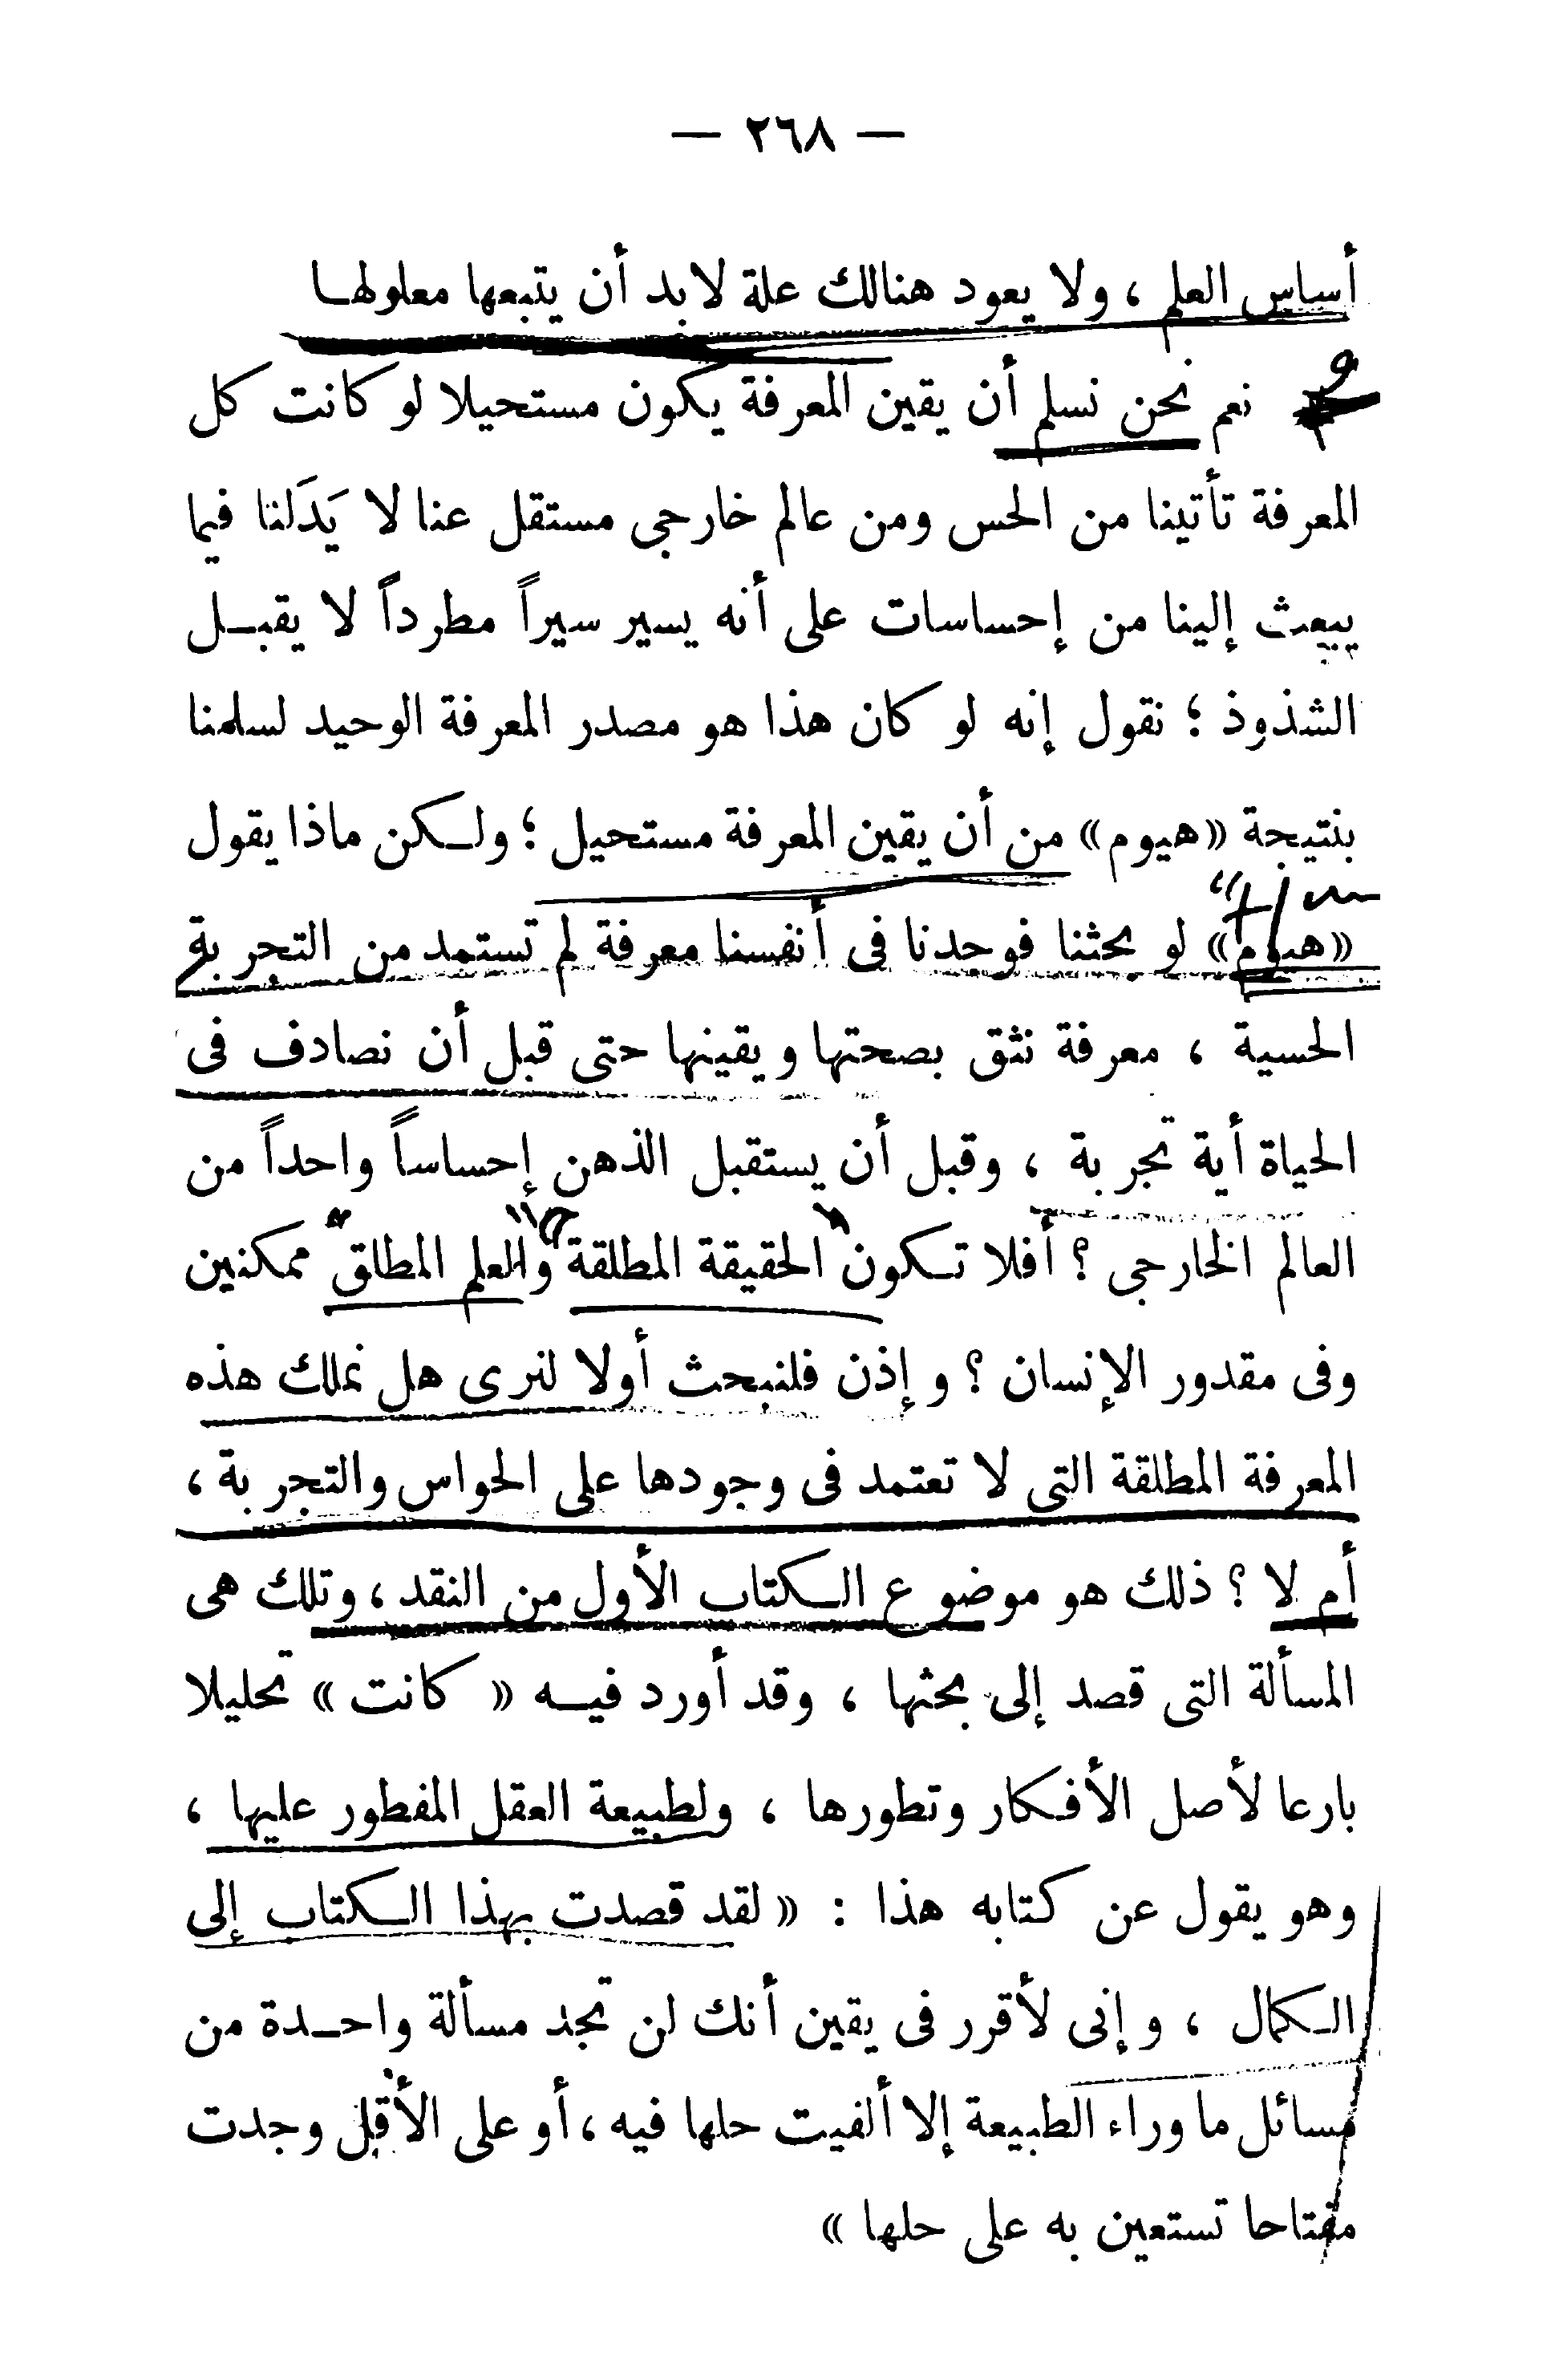 — ٢٦٨ —
أساس العلم ، ولا يعود هنالك علة لا بد أن يتبعها معلولها
نعم نحن نسلم أن يقين المعرفة يكون مستحيلا لو كانت كل
المعرفة تأتينا من الحس ومن عالم خارجى مستقل عنا لا يَدَلنا فيما
يبعث إلينا من إحساسات على أنه يسير سيراً مطرداً لا يقبــل
الشذوذ ؛ نقول إنه لو كان هذا هو مصدر المعرفة الوحيد لسلمنا
بنتيجة «هيوم» من أن يقين المعرفة مستحيل ؛ ولـكن ماذا يقول
«هيوم» لو بحثنا فوجدنا فى أنفسنا معرفة لم تستمد من التجربة
الحسية ، معرفة نثق بصحتها ويقينها حتى قبل أن نصادف فى
الحياة أية تجربة ، وقبل أن يستقبل الذهن إحساساً واحداً من
العالم الخارجى ؟ أفلا تـكون الحقيقة المطلقة والعلم المطلق ممكنين
وفى مقدور الإنسان ؟ وإذن فلنبحث أولا لنرى هل نملك هذه
المعرفة المطلقة التى لا تعتمد فى وجودها على الحواس والتجربة ،
أم لا ؟ ذلك هو موضوع الـكتاب الأول من النقد ، وتلك هى
المسألة التى قصد إلى بحثها ، وقد أورد فيــه « كانت » تحليلا
بارعا لأصل الأفـكار وتطورها ، ولطبيعة العقل المفطور عليها ،
وهو يقول عن كتابه هذا : « لقد قصدت بهذا الـكتاب إلى
الـكمال ، وإنى لأقرر فى يقين أنك لن تجد مسألة واحــدة من
مسائل ما وراء الطبيعة إلا ألفيت حلها فيه ، أو على الأقل وجدت
مفتاحا تستعين به على حلها »